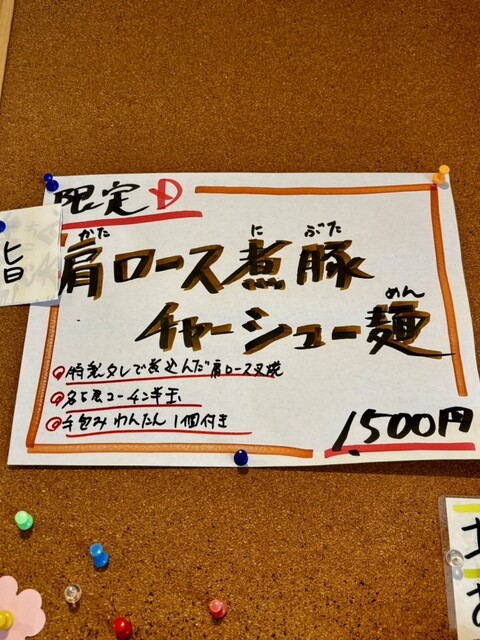 限定D
かた に ぶた
肩ロース煮豚
めん
チャーシュー麺
特製タレで煮込んだ肩ロース叉焼
名古屋コーチン半玉
手包みわんたん1個付き
1,500円
旨